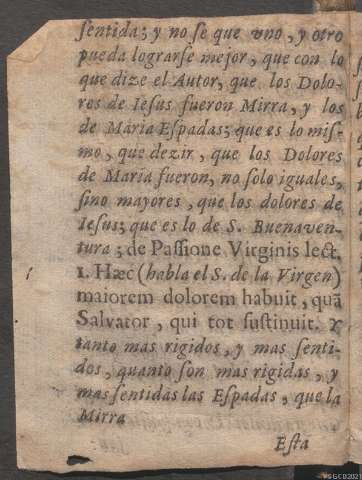 ſentida; y no ſe que uno, y otro
pueda lograrſe mejor, que con lo
que dize el Autor, que los Dolo-
res de Ieſus fueron Mirra, y los
de Maria Eſpadas; que es lo miſ-
mo, que dezir, que los Dolores
de Maria fueron, no ſolo iguales,
ſino mayores, que los dolores de
Ieſus; que es lo de S. Buenaven-
tura; de Paſſione Virginis lect.
1. Hæc (habla el S. de la Virgen)
maiorem dolorem habuit, quã
Salvator, qui tot ſuſtinuit. Y
tanto mas rigidos, y mas ſenti-
dos, quanto ſon mas rigidas, y
mas ſentidas las Eſpadas, que la
Mirra
Eſta